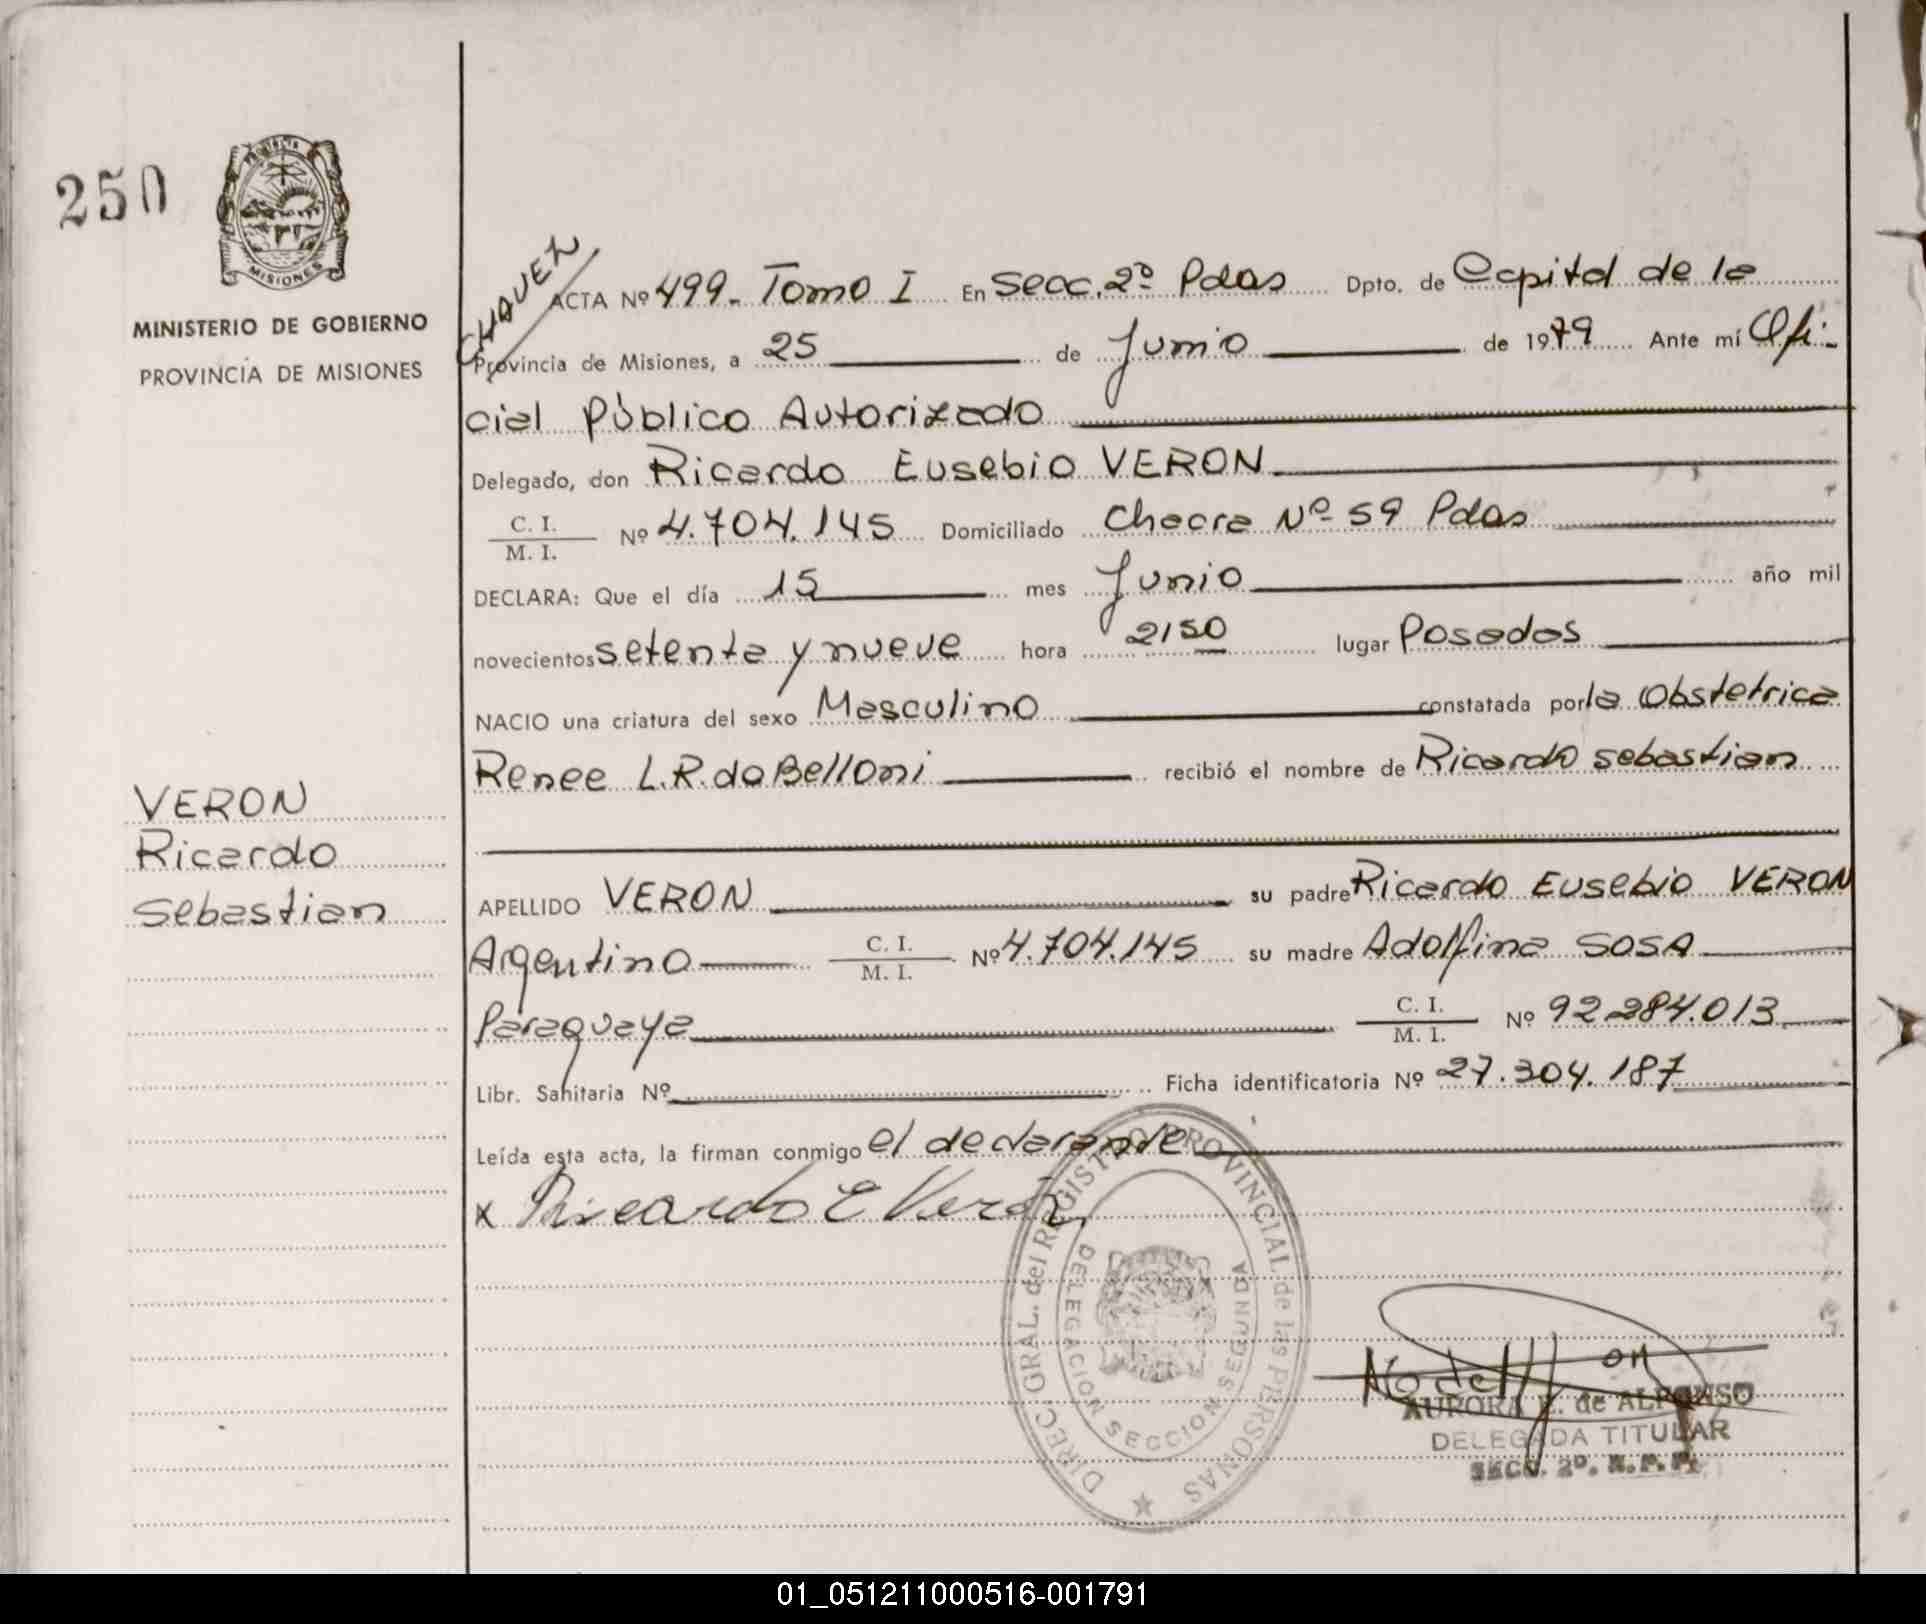 250
PROVINCIA
MISIONES
MINISTERIO DE GOBIERNO
PROVINCIA DE MISIONES
VERON
Ricardo
Sebastian
CHAVEZ
ACTA Nº 499. Tomo I En Secc. 2º Pdas Dpto. de Capital de la
Provincia de Misiones, a 25 de Junio de 1979 Ante mí Ofi-
cial Público Autorizado
Delegado, don Ricardo Eusebio VERON
C. I.
M. I. Nº 4.704.145 Domiciliado Chacra Nº 59 Pdas
DECLARA: Que el día 15 mes Junio año mil
novecientos setenta y nueve hora 2150 lugar Posadas
NACIO una criatura del sexo Masculino constatada por la Obstetrica
Renee L.R. de Belloni recibió el nombre de Ricardo Sebastian
APELLIDO VERON su padre Ricardo Eusebio VERON
Argentino C. I. M. I. Nº 4.704.145 su madre Adolfina SOSA
Paraguaya C. I. M. I. Nº 92.284.013
Libr. Sanitaria Nº Ficha identificatoria Nº 27.304.187
Leída esta acta, la firman conmigo el declarante
x Ricardo E Verón
DIREC. GRAL. del REGISTRO PROVINCIAL de las PERSONAS
DELEGACION SECCION SEGUNDA
AURORA de ALFONSO
DELEGADA TITULAR
SECC. 2º. R. P. P.
01_051211000516-001791